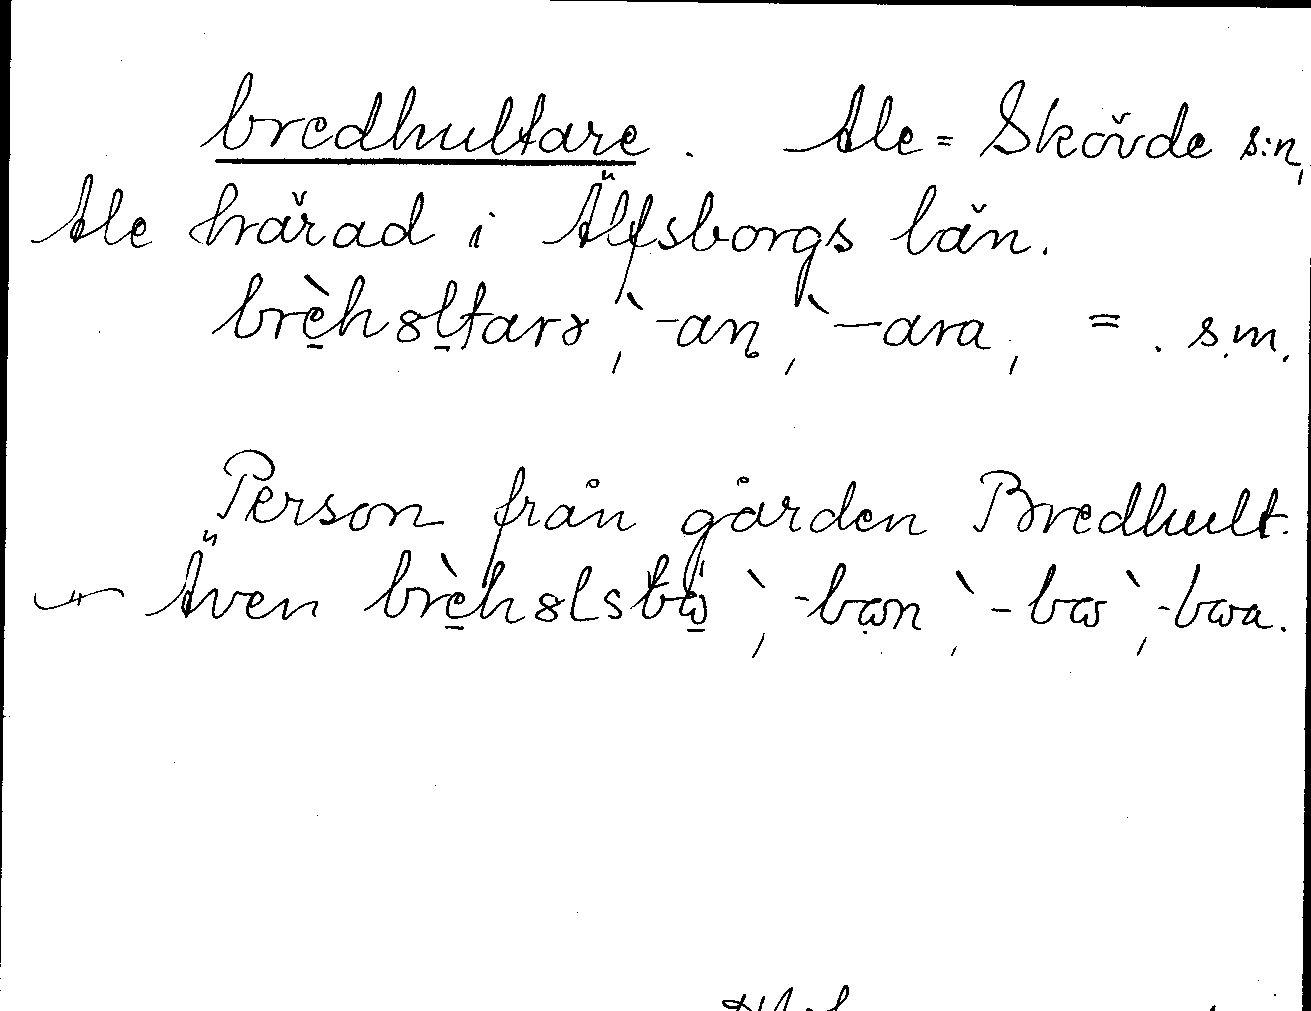 bredhultare. Ale=Skövde s:n,
Ale härad i Älfsborgs län.
brèhɞltarɤ, `-an, `-ara, =. s.m.
Person från gården Bredhult.
Även brèhɞlsbɷ̀, `-bɷn, `-bɷ, `-bɷa.